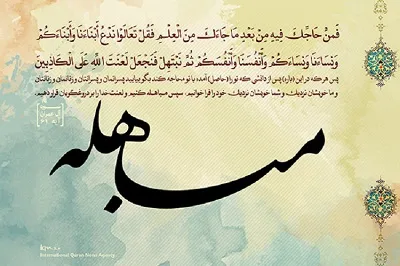 فَمَنْ حَاجَّكَ فِيهِ مِنْ بَعْدِ مَا جَاءَكَ مِنَ الْعِلْمِ فَقُلْ تَعَالَوْا نَدْعُ أَبْنَاءَنَا وَأَبْنَاءَكُمْ
وَنِسَاءَنَا وَنِسَاءَكُمْ وَأَنْفُسَنَا وَأَنْفُسَكُمْ ثُمَّ نَبْتَهِلْ فَنَجْعَلْ لَعْنَتَ اللَّهِ عَلَى الْكَاذِبِينَ
پس هر که در این (باره) پس از دانشی که تو را (حاصل) آمده با تو محاجه کند بگو بیایید پسرانمان و پسرانتان و زنانمان و زنانتان
و ما خویشان نزدیک و شما خویشان نزدیک خود را فرا خوانیم، سپس مباهله کنیم و لعنت خدا را بر دروغگویان قرار دهیم.
آل عمران
مباهله
International Quran News Agency